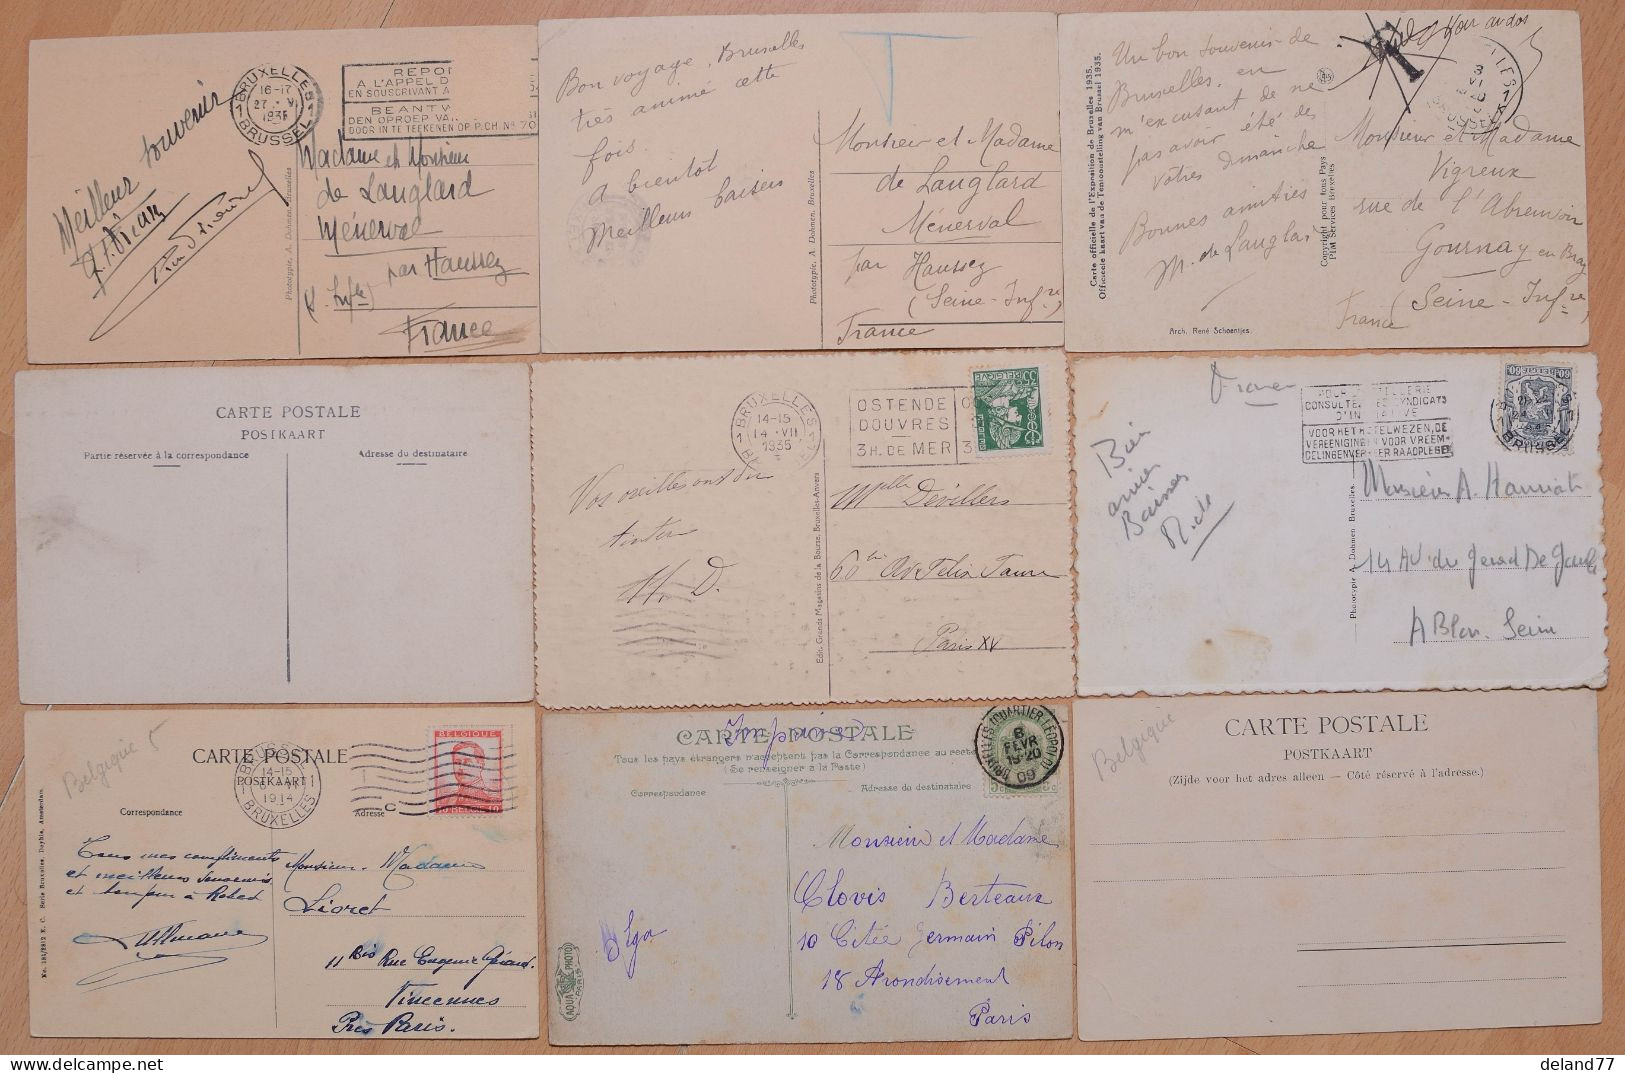 BRUXELLES
16-17
1935
BRUSSEL
A L'APPEL D
EN SOUSCRIVANT A
DEN OPROEP VA
DOOR IN TE TEEKENEN OP P.CH. Nº 70
Meilleur souvenir
Madame et Monsieur
de Langlard
Ménerval
par Haussez
France
Phototypie, A. Dohmen, Bruxelles
Bon voyage, Bruxelles
très animé cette
fois.
A bientot
Meilleurs baisers
T
Monsieur et Madame
de Langlard
Ménerval
par Haussez
(Seine-Infre)
France
Phototypie, A. Dohmen, Bruxelles
Un bon souvenir de
Bruxelles, en
m'excusant de ne
pas avoir été des
votres dimanche
Bonnes amitiés
M. de Langlar
T
Voir au dos
Carte officielle de l'Exposition de Bruxelles 1935.
Officieele kaart van de Tentoonstelling van Brussel 1935.
Copyright pour tous Pays
PIM Services Bruxelles
Arch. René Schoentjes
Monsieur et Madame
Vigreux
rue de l'Abreuvoir
Gournay en Bray
(Seine-Infre)
France
CARTE POSTALE
POSTKAART
Partie réservée à la correspondance
Adresse du destinataire
BRUXELLES
14-15
14 VII
1935
OSTENDE
DOUVRES
3H. DE MER
BELGIQUE
35c
Vos oreilles ont du
tinter
H. D.
Edit. Grands Magasins de la Bourse, Bruxelles-Anvers
Melle Devillers
60 bis Av Felix Faure
Paris XV
CONSULTE SYNDICATS
VOOR HET HOTELWEZEN, DE
VEREENIGINGEN VOOR VREEM-
DELINGENVERKEER RAADPLEGEN
BRUSSEL
60c
Bien
amier
Baisers
Phototypie A. Dohmen Bruxelles.
Monsieur A.
14 AV du General De Gaulle
A Seine
Belgique 5
CARTE POSTALE
POSTKAART
Correspondance
Adresse
14-15
1914
BRUXELLES
BELGIQUE
10 BELGIE 10
No. 181/2812 E. C. Serie Bruxelles, Dephla, Amsterdam.
Tous mes compliments
et meilleurs souvenirs
et bonjour à Robert
Monsieur. Madame
Lioret
11 Bis Rue Eugenie Gérard.
Vincennes
Près Paris.
CARTE POSTALE
Tous les pays étrangers n'acceptent pas la Correspondance au recto
(Se renseigner à la Poste)
Correspondance
Adresse du destinataire
BRUXELLES (QUARTIER-LEOPOLD)
6
FEVR
19-20
09
Olga
AQUA PHOTO
PARIS
Monsieur et Madame
Clovis Berteaux
10 Citée Germain Pilon
18 Arondisement
Paris
Belgique
CARTE POSTALE
POSTKAART
(Zijde voor het adres alleen — Côté réservé à l'adresse.)
deland77